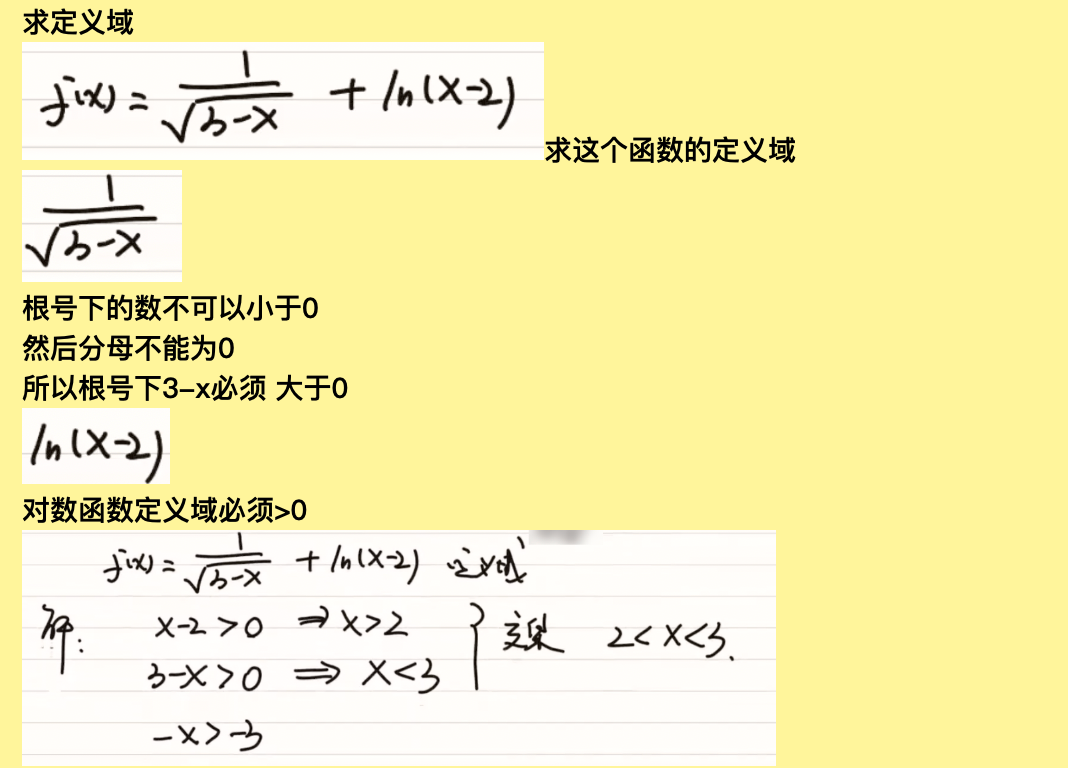 求定义域
f(x) = 1/√(3-x) + ln(x-2) 求这个函数的定义域
1/√(3-x)
根号下的数不可以小于0
然后分母不能为0
所以根号下3-x必须 大于0
ln(x-2)
对数函数定义域必须>0
f(x) = 1/√(3-x) + ln(x-2) 定义域
解: x-2>0 ⇒ x>2 } 交集 2<x<3.
3-x>0 ⇒ x<3
-x>-3